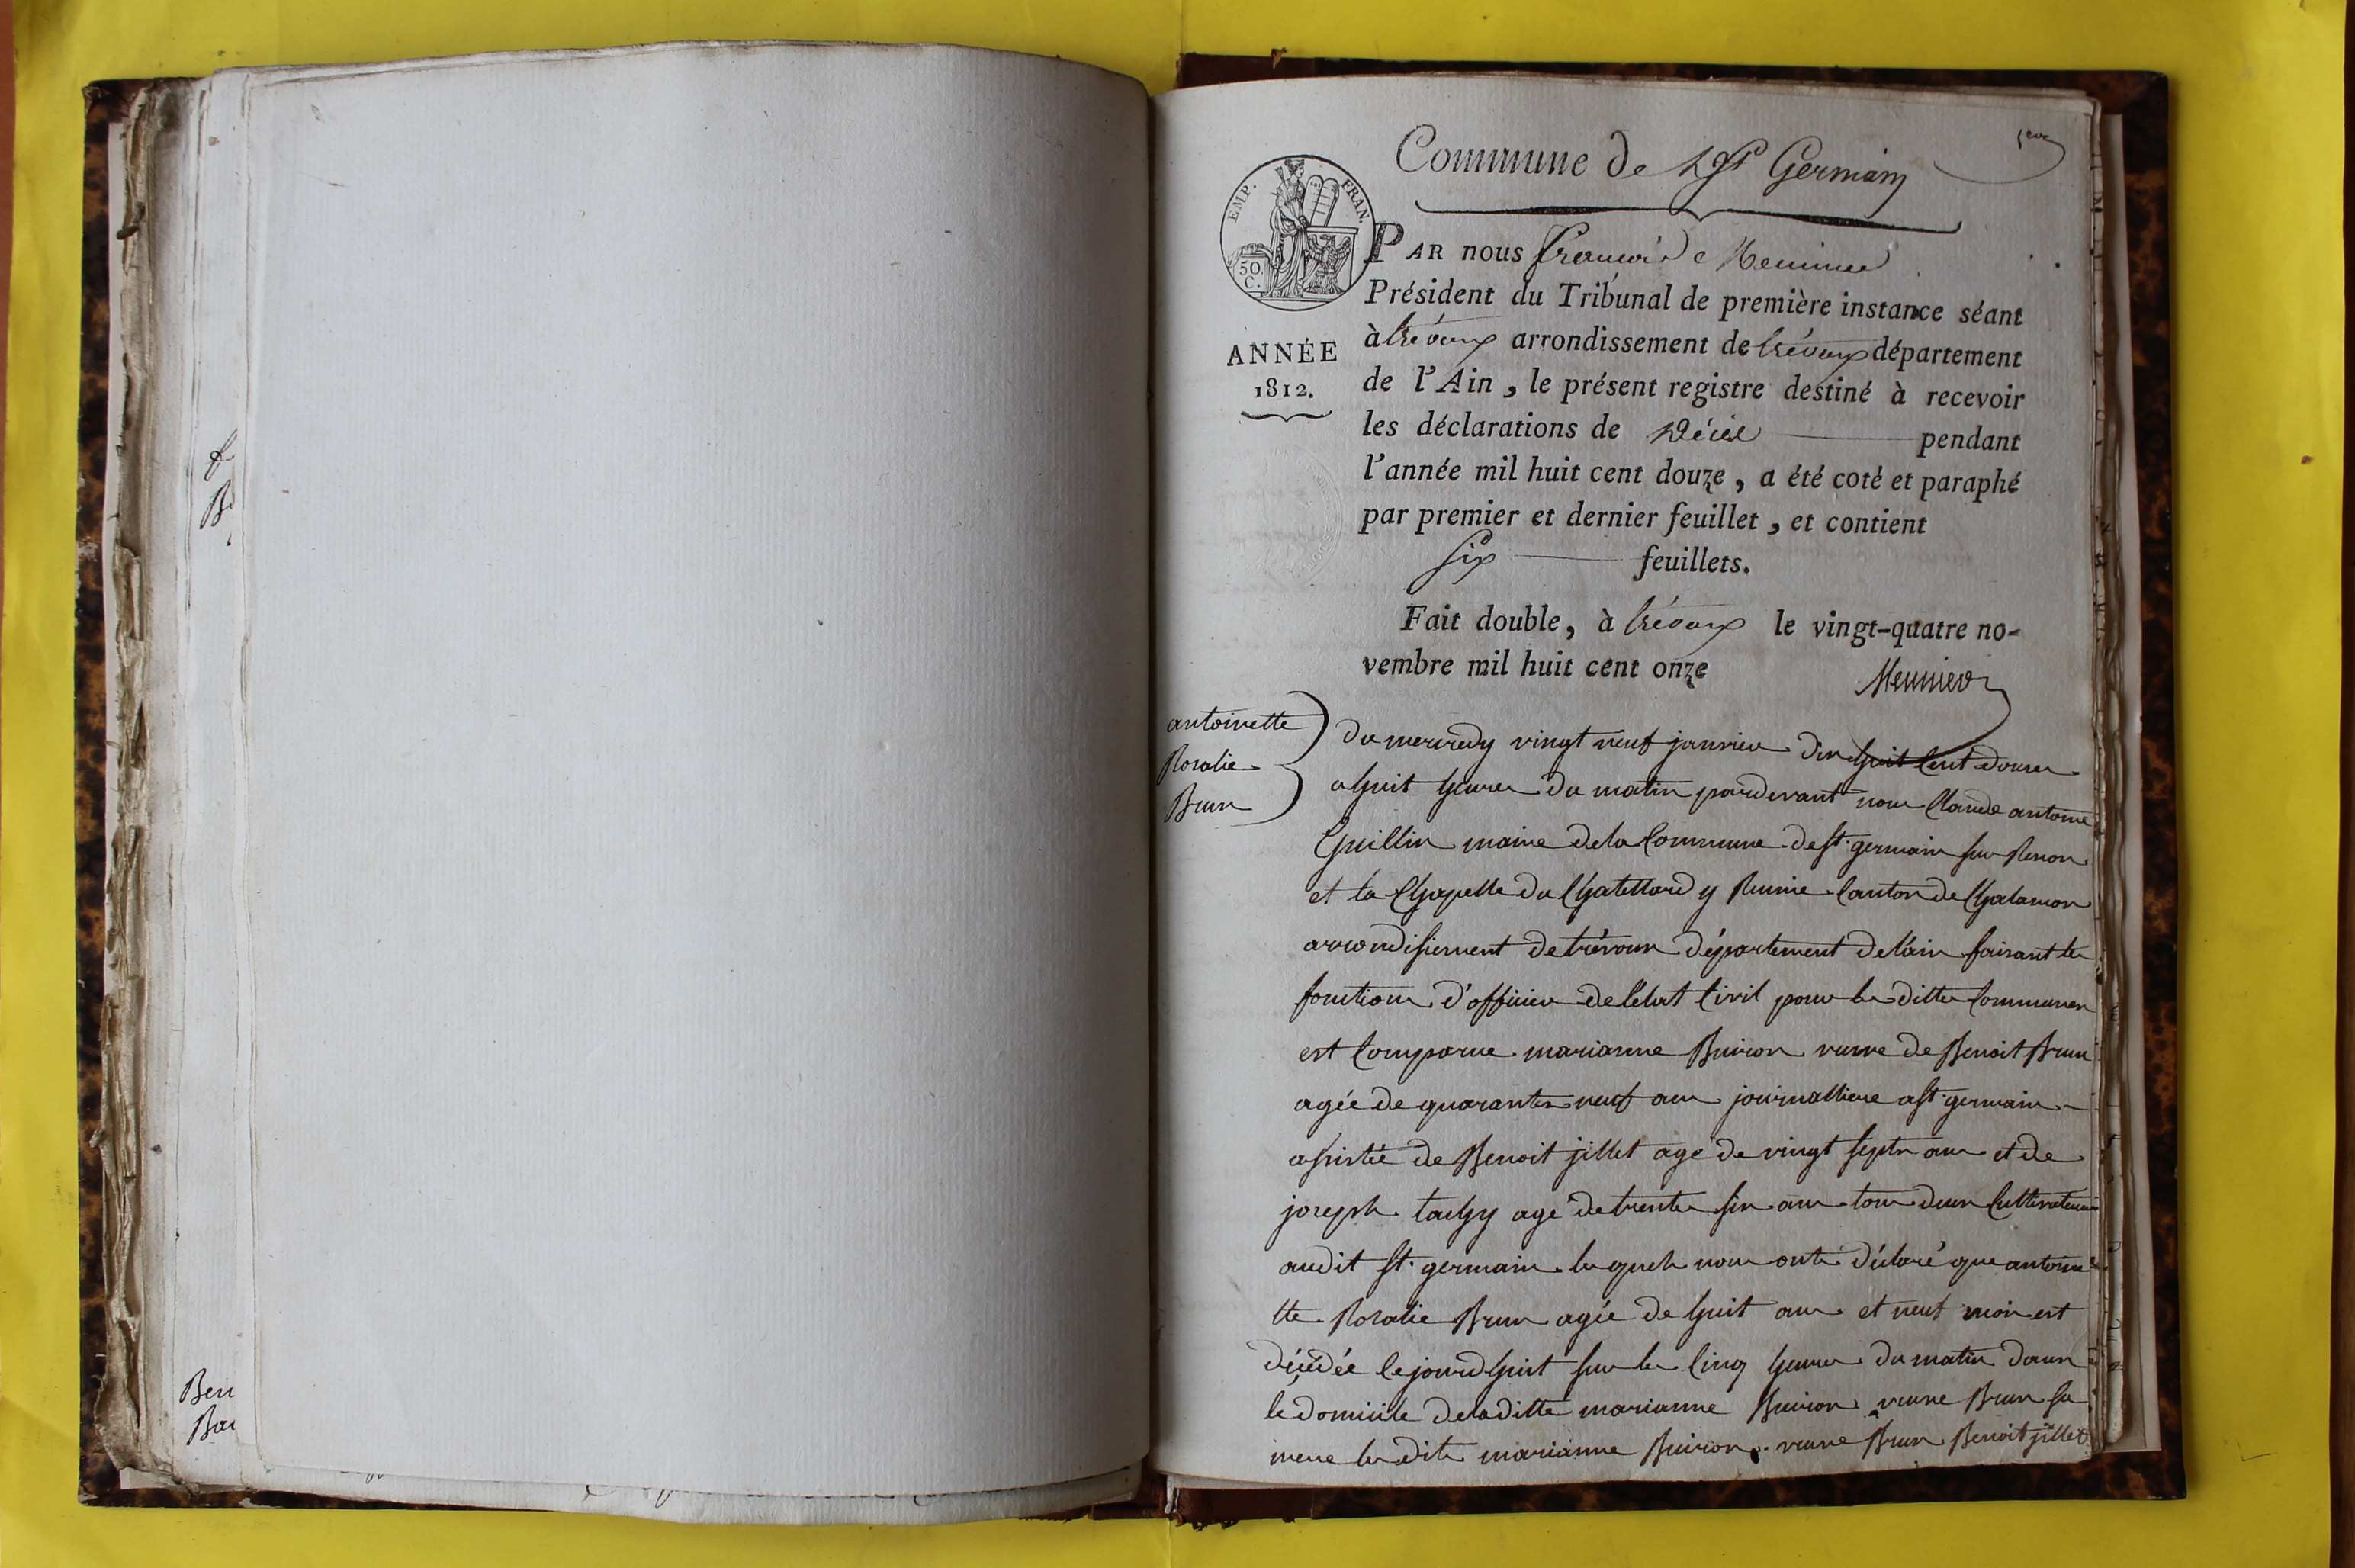 f
B
Ben
Bar
1er
Commune de St Germain
EMP. FRAN.
50.
C.
ANNÉE
1812.
PAR nous françois Meunier
Président du Tribunal de première instance séant
à trévoux arrondissement de trévoux département
de l'Ain, le présent registre destiné à recevoir
les déclarations de décès pendant
l'année mil huit cent douze, a été coté et paraphé
par premier et dernier feuillet, et contient
six feuillets.
Fait double, à trévoux le vingt-quatre no-
vembre mil huit cent onze
Meunier
antoinette
Rosalie
Brun
du mercredy vingt neuf janvier dix huit Cent douze
a huit heures du matin pardevant nous Claude antoine
Guillin maire de la Commune de st. germain sur Renon
et la Chapelle du Chatellard y Réunie Canton de Chalamon
arrondissement de trévoux département de l'ain faisant les
fonctions d'officier de l'état Civil pour les dittes Communes
est Comparue marianne Buiron veuve de Benoit Brun
agée de quarante neuf ans journalliere a st. germain
assistée de Benoit jillet agé de vingt sept ans et de
joseph tachy agé de trente six ans tous deux Cultivateurs
audit st. germain les quels nous ont déclaré que antoine
tte Rosalie Brun agée de huit ans et neuf mois est
décédée Cejourdhuit sur les Cinq heures du matin dans
le domicile de laditte marianne Buiron veuve Brun sa
mere lesdits marianne Buiron veuve Brun Benoit jillet